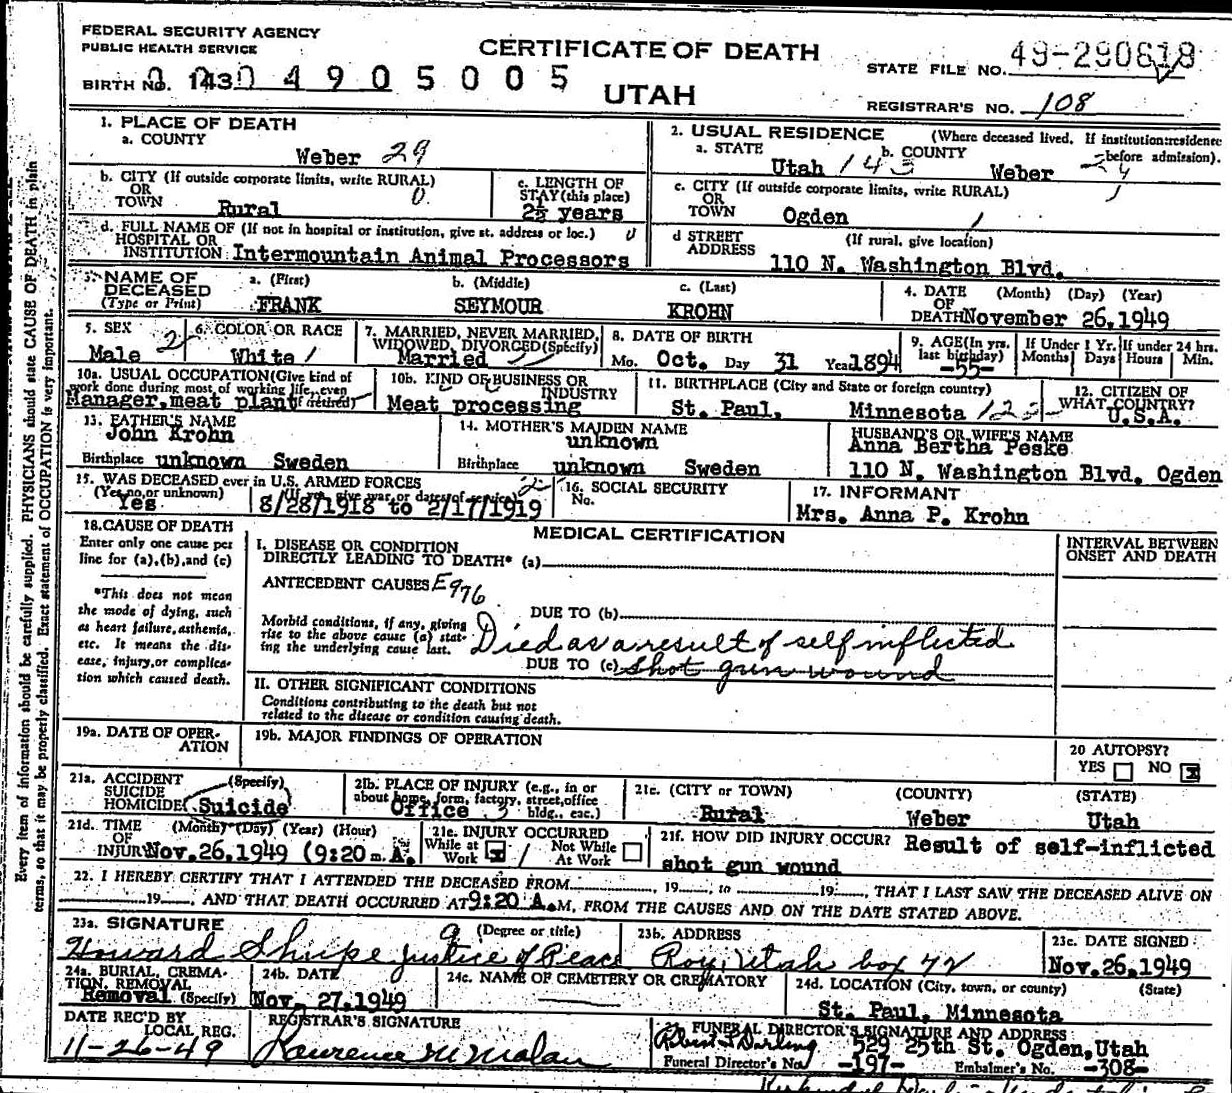 FEDERAL SECURITY AGENCY
PUBLIC HEALTH SERVICE
CERTIFICATE OF DEATH
STATE FILE NO. 49-290618
BIRTH NO. 143 4905005
UTAH
REGISTRAR'S NO. 108
1. PLACE OF DEATH
a. COUNTY
Weber 29
2. USUAL RESIDENCE (Where deceased lived. If institution: residence before admission).
a. STATE Utah 143 b. COUNTY Weber
b. CITY (If outside corporate limits, write RURAL)
OR
TOWN Rural
c. LENGTH OF
STAY (this place)
2½ years
c. CITY (If outside corporate limits, write RURAL)
OR
TOWN Ogden
d. FULL NAME OF (If not in hospital or institution, give st. address or loc.)
HOSPITAL OR
INSTITUTION Intermountain Animal Processors
d STREET ADDRESS (If rural, give location)
110 N. Washington Blvd.
3. NAME OF DECEASED
(Type or Print)
a. (First) FRANK
b. (Middle) SEYMOUR
c. (Last) KROHN
4. DATE OF DEATH (Month) (Day) (Year)
November 26, 1949
5. SEX
Male 2
6. COLOR OR RACE
White 1
7. MARRIED, NEVER MARRIED, WIDOWED, DIVORCED (Specify)
Married
8. DATE OF BIRTH
Mo. Oct. Day 31 Year 1894
9. AGE (In yrs. last birthday)
-55-
If Under 1 Yr. Months Days
If under 24 hrs. Hours Min.
10a. USUAL OCCUPATION (Give kind of work done during most of working life, even if retired)
Manager, meat plant
10b. KIND OF BUSINESS OR INDUSTRY
Meat processing
11. BIRTHPLACE (City and State or foreign country)
St. Paul, Minnesota
12. CITIZEN OF WHAT COUNTRY?
U.S.A.
13. FATHER'S NAME
John Krohn
Birthplace unknown Sweden
14. MOTHER'S MAIDEN NAME
unknown
Birthplace unknown Sweden
HUSBAND'S OR WIFE'S NAME
Anna Bertha Peske
110 N. Washington Blvd. Ogden
15. WAS DECEASED ever in U.S. ARMED FORCES
(Yes, no, or unknown) (If yes, give war or dates of service)
Yes 8/28/1918 to 2/17/1919
16. SOCIAL SECURITY No.
17. INFORMANT
Mrs. Anna P. Krohn
18. CAUSE OF DEATH
Enter only one cause per
line for (a), (b), and (c)
*This does not mean
the mode of dying, such
as heart failure, asthenia,
etc. It means the dis-
ease, injury, or complica-
tion which caused death.
MEDICAL CERTIFICATION
INTERVAL BETWEEN ONSET AND DEATH
I. DISEASE OR CONDITION
DIRECTLY LEADING TO DEATH* (a)
ANTECEDENT CAUSES E976
DUE TO (b)
Morbid conditions, if any, giving
rise to the above cause (a) stat-
ing the underlying cause last.
Died as a result of self inflicted
DUE TO (c) shot gun wound
II. OTHER SIGNIFICANT CONDITIONS
Conditions contributing to the death but not
related to the disease or condition causing death.
19a. DATE OF OPERATION
19b. MAJOR FINDINGS OF OPERATION
20 AUTOPSY?
YES NO x
21a. ACCIDENT SUICIDE HOMICIDE (Specify)
Suicide
21b. PLACE OF INJURY (e.g., in or about home, farm, factory, street, office bldg., etc.)
Office
21c. (CITY or TOWN) (COUNTY) (STATE)
Rural Weber Utah
21d. TIME OF INJURY (Month) (Day) (Year) (Hour)
Nov. 26, 1949 (9:20 m. A.
21e. INJURY OCCURRED
While at Work x Not While At Work
21f. HOW DID INJURY OCCUR? Result of self-inflicted
shot gun wound
22. I HEREBY CERTIFY THAT I ATTENDED THE DECEASED FROM , 19 , to 19 , THAT I LAST SAW THE DECEASED ALIVE ON
19 , AND THAT DEATH OCCURRED AT 9:20 A.M, FROM THE CAUSES AND ON THE DATE STATED ABOVE.
23a. SIGNATURE (Degree or title)
Howard Justice of Peace
23b. ADDRESS
Roy, Utah box 42
23c. DATE SIGNED
Nov. 26, 1949
24a. BURIAL, CREMATION, REMOVAL (Specify)
Removal
24b. DATE
Nov. 27, 1949
24c. NAME OF CEMETERY OR CREMATORY
24d. LOCATION (City, town, or county) (State)
St. Paul, Minnesota
DATE REC'D BY LOCAL REG.
11-26-49
REGISTRAR'S SIGNATURE
Laurence M Malan
FUNERAL DIRECTOR'S SIGNATURE AND ADDRESS
Robert Darling 529 25th St. Ogden, Utah
Funeral Director's No. -197- Embalmer's No. -308-
Every item of information should be carefully supplied. PHYSICIANS should state CAUSE OF DEATH in plain
terms, so that it may be properly classified. Exact statement of OCCUPATION is very important.